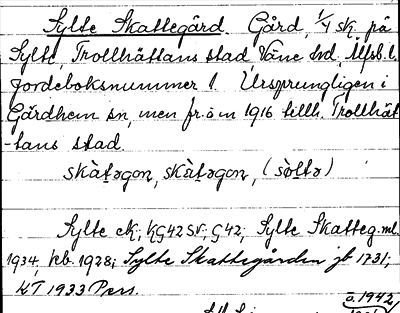 Sylte Skattegård. Gård, 1/4 sk. på
Sylte, Trollhättans stad, Väne hd, Älfsb. l.
Jordeboksnummer 1. Ursprungligen i
Gärdhem sn, men fr. o m 1916 tillh. Trollhät
-tans stad.
skàtəgon, skàtəgon, (sòltə)
Sylte ek; KG42SV; G42; Sylte Skatteg. ml.
1934, kb. 1928; Sylte Skattegården jb 1731;
KT 1933 Pers.
ö. 1942